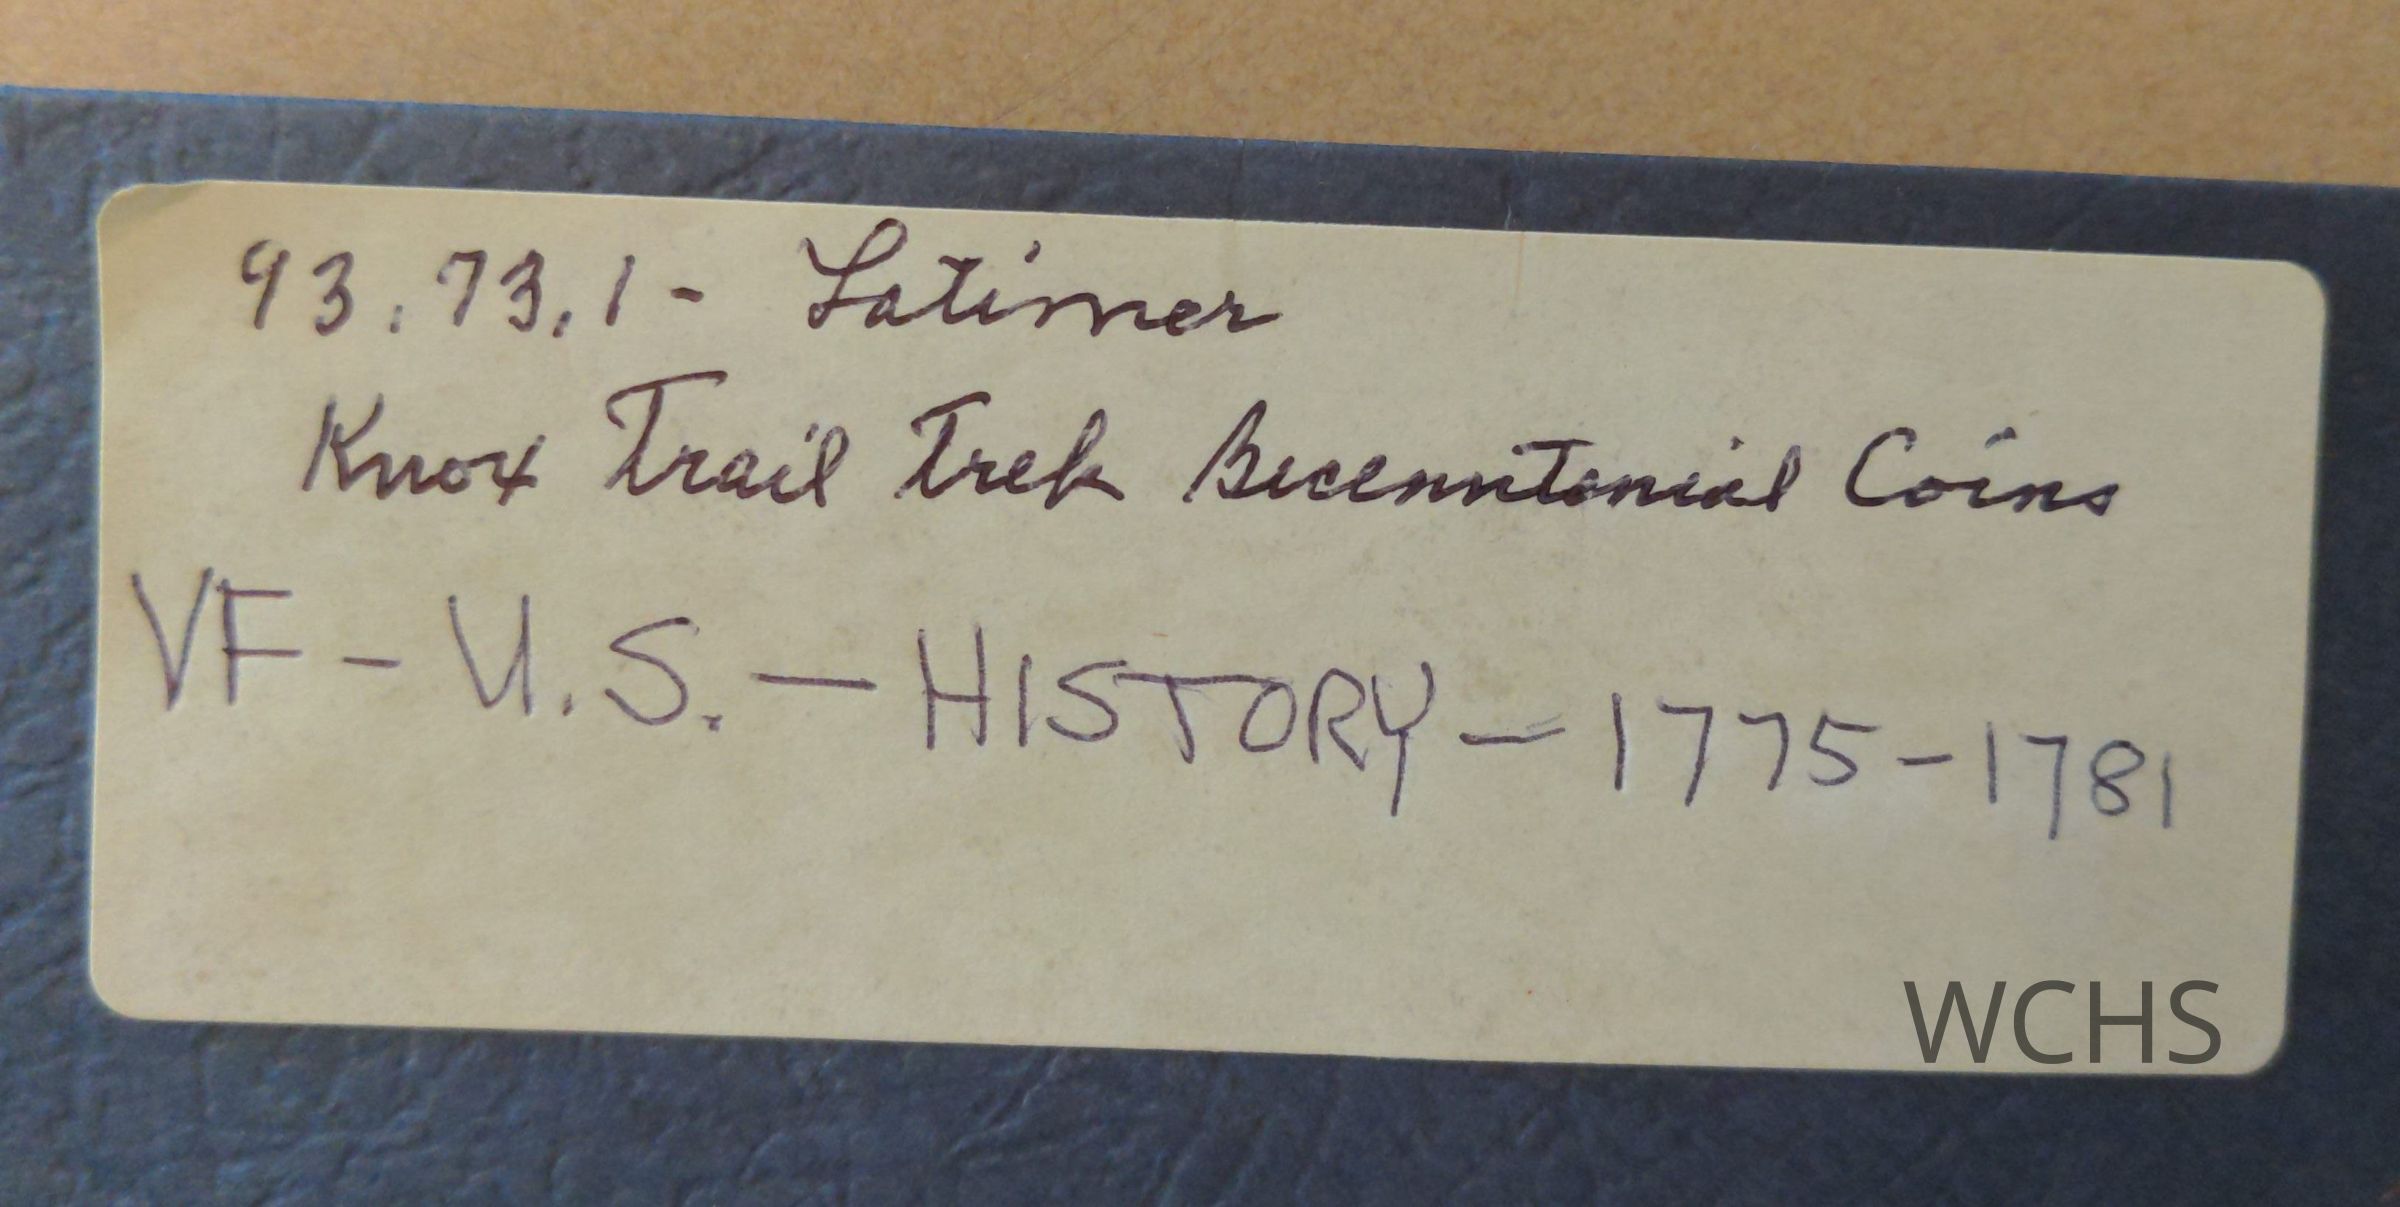 93.73.1 - Latimer
Knox Trail Trek Bicenntenial Coins
VF - U.S. - HISTORY - 1775-1781
WCHS